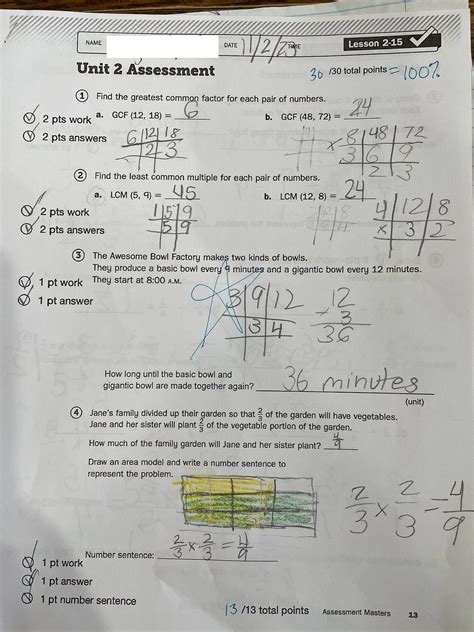 NAME DATE 11/2/23 TIME Lesson 2-15
Unit 2 Assessment 30 /30 total points = 100%
1 Find the greatest common factor for each pair of numbers.
2 pts work a. GCF (12, 18) = 6 b. GCF (48, 72) = 24
2 pts answers 6 12 18 8 48 72
2 3 × 3 6 9
2 3
2 Find the least common multiple for each pair of numbers.
a. LCM (5, 9) = 45 b. LCM (12, 8) = 24
2 pts work 1 5 9 4 12 8
2 pts answers 5 9 × 3 2
3 The Awesome Bowl Factory makes two kinds of bowls.
They produce a basic bowl every 9 minutes and a gigantic bowl every 12 minutes.
1 pt work They start at 8:00 A.M.
1 pt answer 3 9 12 12
3 4 3
36
How long until the basic bowl and
gigantic bowl are made together again? 36 minutes
(unit)
4 Jane's family divided up their garden so that 2/3 of the garden will have vegetables.
Jane and her sister will plant 2/3 of the vegetable portion of the garden.
How much of the family garden will Jane and her sister plant? 4/9
Draw an area model and write a number sentence to
represent the problem.
2/3 × 2/3 = 4/9
Number sentence: 2/3 × 2/3 = 4/9
1 pt work
1 pt answer
1 pt number sentence
13 /13 total points Assessment Masters 13